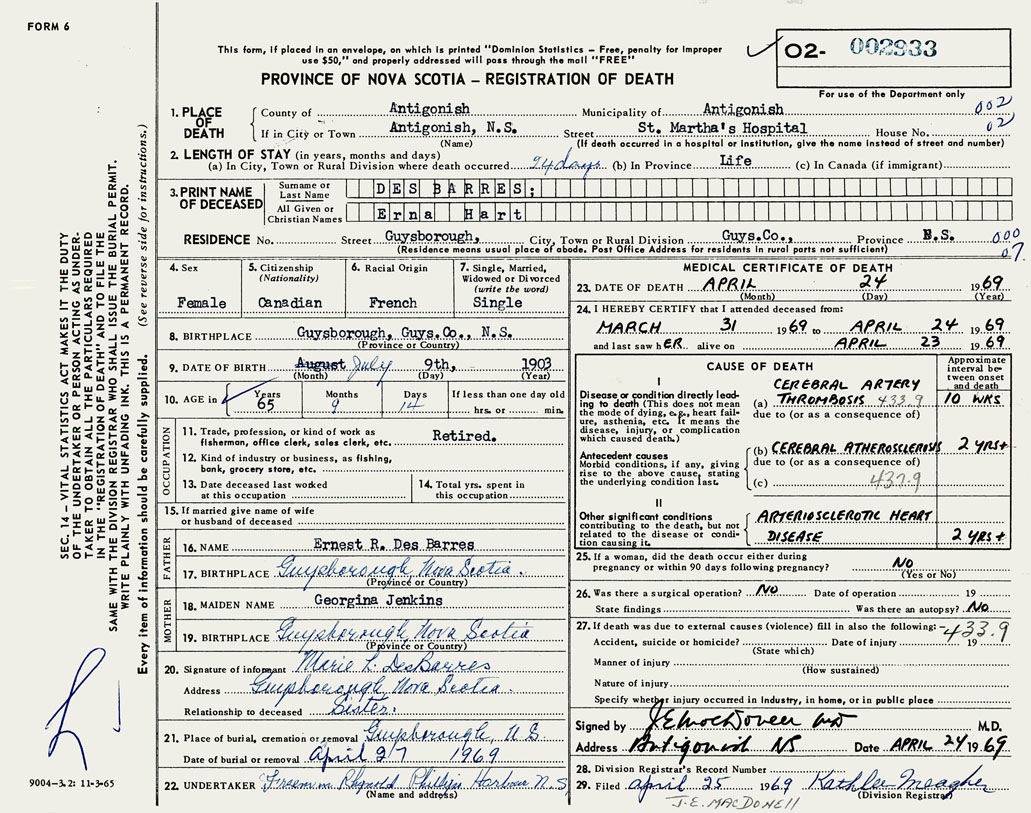 FORM 6
This form, if placed in an envelope, on which is printed "Dominion Statistics – Free, penalty for improper
use $50," and properly addressed will pass through the mail "FREE"
PROVINCE OF NOVA SCOTIA – REGISTRATION OF DEATH
02- 002933
For use of the Department only
002
02
1. PLACE OF DEATH
County of Antigonish Municipality of Antigonish
If in City or Town Antigonish, N.S. Street St. Martha's Hospital House No.
(Name) (If death occurred in a hospital or institution, give the name instead of street and number)
2. LENGTH OF STAY (in years, months and days)
(a) In City, Town or Rural Division where death occurred 24 days (b) In Province Life (c) In Canada (if immigrant)
3. PRINT NAME OF DECEASED
Surname or Last Name DES BARRES:
All Given or Christian Names Erna Hart
RESIDENCE No. Street Guysborough, City, Town or Rural Division Guys.Co., Province N.S.
(Residence means usual place of abode. Post Office Address for residents in rural parts not sufficient)
000
07.
4. Sex
Female
5. Citizenship
(Nationality)
Canadian
6. Racial Origin
French
7. Single, Married,
Widowed or Divorced
(write the word)
Single
8. BIRTHPLACE Guysborough, Guys.Co., N.S.
(Province or Country)
9. DATE OF BIRTH August July 9th, 1903
(Month) (Day) (Year)
10. AGE in Years Months Days If less than one day old
65 9 14 hrs. or min.
OCCUPATION
11. Trade, profession, or kind of work as
fisherman, office clerk, sales clerk, etc. Retired.
12. Kind of industry or business, as fishing,
bank, grocery store, etc.
13. Date deceased last worked
at this occupation
14. Total yrs. spent in
this occupation
15. If married give name of wife
or husband of deceased
FATHER
16. NAME Ernest R. Des Barres
17. BIRTHPLACE Guysborough Nova Scotia.
(Province or Country)
MOTHER
18. MAIDEN NAME Georgina Jenkins
19. BIRTHPLACE Guysborough Nova Scotia
(Province or Country)
20. Signature of informant Marie L. DesBarres
Address Guysborough Nova Scotia.
Relationship to deceased Sister.
21. Place of burial, cremation or removal Guysborough, N.S.
Date of burial or removal April 27 1969
22. UNDERTAKER Phillips Harbour N.S.
(Name and address)
MEDICAL CERTIFICATE OF DEATH
23. DATE OF DEATH APRIL 24 1969
(Month) (Day) (Year)
24. I HEREBY CERTIFY that I attended deceased from:
MARCH 31 1969 to APRIL 24 1969
and last saw hER alive on APRIL 23 1969
CAUSE OF DEATH
Approximate
interval be-
tween onset
and death
I
Disease or condition directly lead-
ing to death (This does not mean
the mode of dying, e.g., heart fail-
ure, asthenia, etc. It means the
disease, injury, or complication
which caused death.)
CEREBRAL ARTERY
(a) THROMBOSIS 433.9 10 WKS
due to (or as a consequence of)
Antecedent causes
Morbid conditions, if any, giving
rise to the above cause, stating
the underlying condition last.
(b) CEREBRAL ATHEROSCLEROSIS 2 YRS+
due to (or as a consequence of)
(c) 437.9
II
Other significant conditions
contributing to the death, but not
related to the disease or condi-
tion causing it.
ARTERIOSCLEROTIC HEART
DISEASE 2 YRS+
25. If a woman, did the death occur either during
pregnancy or within 90 days following pregnancy? NO
(Yes or No)
26. Was there a surgical operation? NO Date of operation 19
State findings Was there an autopsy? NO
27. If death was due to external causes (violence) fill in also the following: -433.9
Accident, suicide or homicide? Date of injury 19
(State which)
Manner of injury
(How sustained)
Nature of injury
Specify whether injury occurred in industry, in home, or in public place
Signed by J E MacDonell MD M.D.
Address Antigonish NS Date APRIL 24 1969
28. Division Registrar's Record Number
29. Filed april 25 1969 Kathlee Meagher
(Division Registrar)
J.E. MACDONELL
SEC. 14 – VITAL STATISTICS ACT MAKES IT THE DUTY
OF THE UNDERTAKER OR PERSON ACTING AS UNDER-
TAKER TO OBTAIN ALL THE PARTICULARS REQUIRED
IN THE "REGISTRATION OF DEATH" AND TO FILE THE
SAME WITH THE DIVISION REGISTRAR WHO SHALL ISSUE THE BURIAL PERMIT.
WRITE PLAINLY WITH UNFADING INK. THIS IS A PERMANENT RECORD.
Every item of information should be carefully supplied. (See reverse side for instructions.)
9004–3.2: 11-3-65